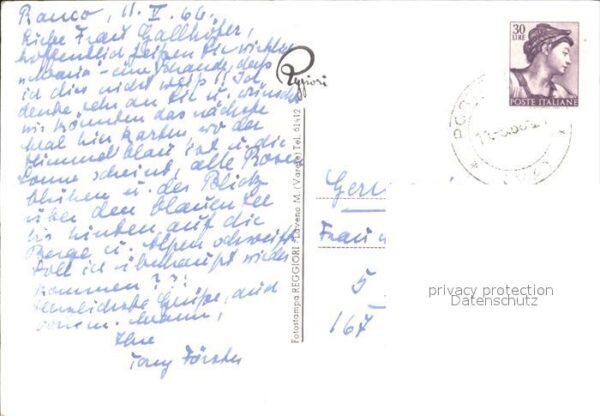 Ranco, 11. V. 66.
Liebe Frau Gallhöfer,
hoffentlich heißen Sie wirklich
Maria - eine Schande, daß
ich dies nicht weiß!! Ich
denke sehr an Sie u. wünsche
wir könnten das nächste
Mal hin starten wo der
Himmel blau ist u. die
Sonne scheint, alle Rosen
blühen u. der Blick
über den blauen See
bis hinten auf die
Berge u. Alpen schweift.
Soll ich überhaupt wieder
kommen??!
Herzlichste Grüße, auch
von m. Mann,
Ihre
Tony Förster
Reggiori
Fotostampa REGGIORI - Laveno M. (Varese) Tel. 61412
30
LIRE
POSTE ITALIANE
Ger
Frau
5
167
privacy protection
Datenschutz